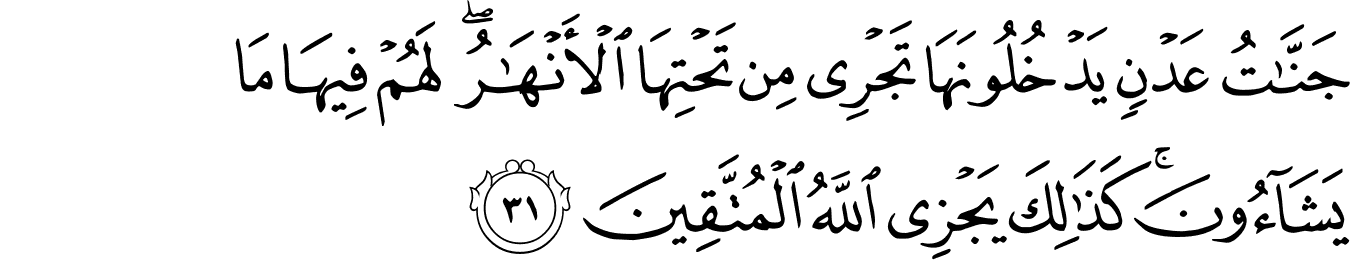 جَنَّـٰتُ عَدْنٍ يَدْخُلُونَهَا تَجْرِى مِن تَحْتِهَا ٱلْأَنْهَـٰرُ ۖ لَهُمْ فِيهَا مَا
يَشَآءُونَ ۚ كَذَٰلِكَ يَجْزِى ٱللَّهُ ٱلْمُتَّقِينَ ٣١